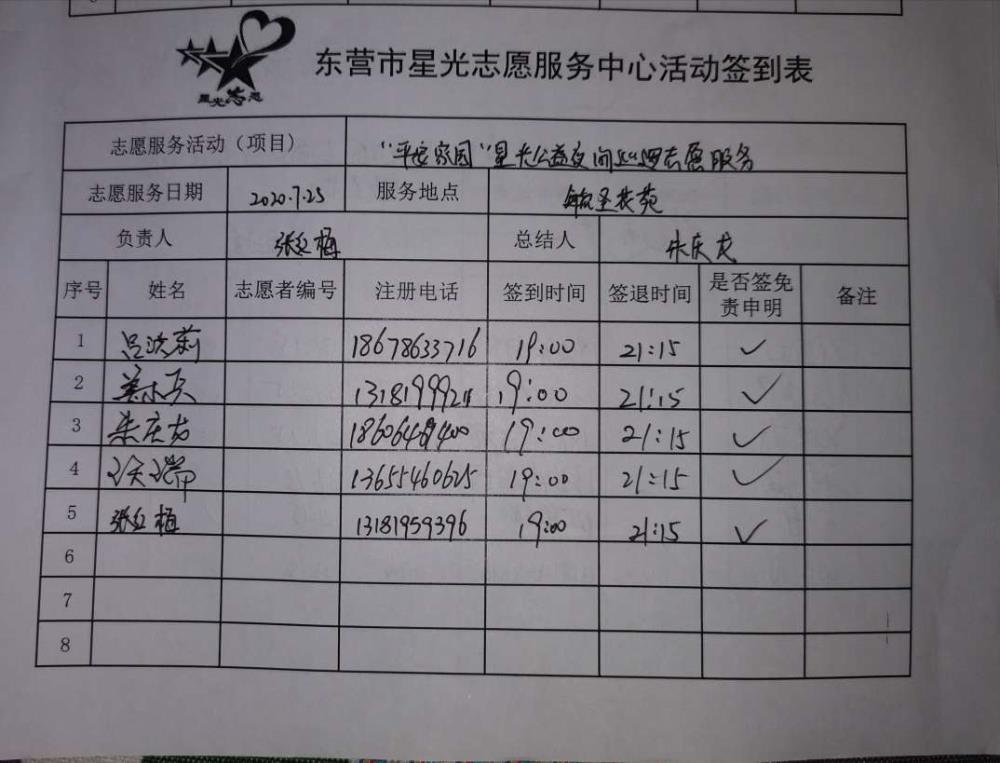 星光志愿
东营市星光志愿服务中心活动签到表
志愿服务活动（项目） “平安家园”星光公益夜间巡逻志愿服务
志愿服务日期 2020.7.25 服务地点
负责人 张红梅 总结人 朱庆龙
序号 姓名 志愿者编号 注册电话 签到时间 签退时间 是否签免责申明 备注
1 18678633716 19:00 21:15 ✓
2 19:00 21:15 ✓
3 朱庆龙 19:00 21:15 ✓
4 13655460625 19:00 21:15 ✓
5 张红梅 13181959396 19:00 21:15 ✓
6
7
8